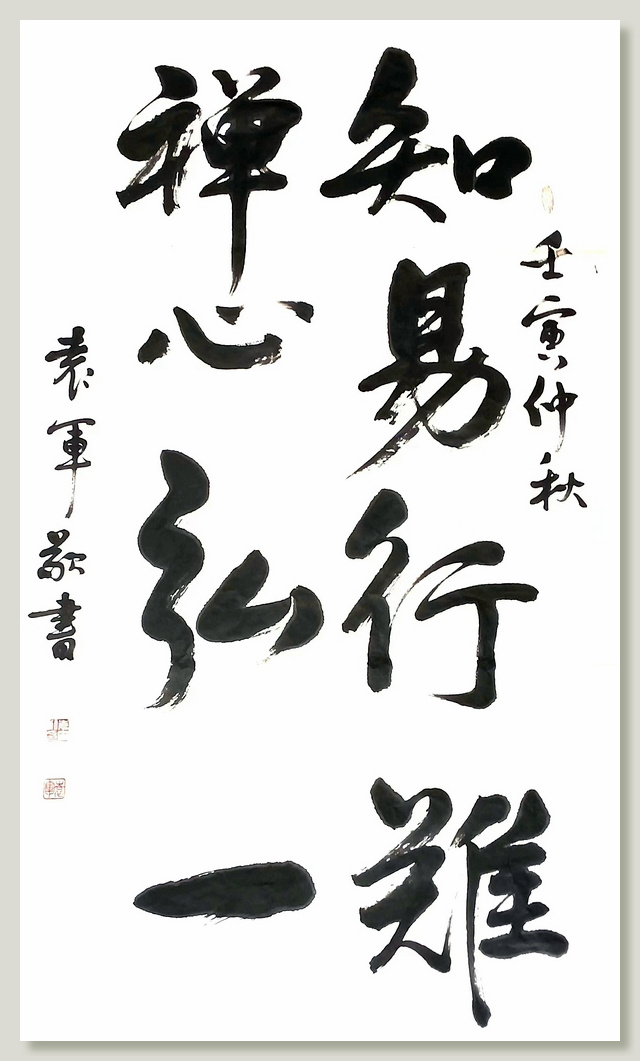 壬寅仲秋
知易行難
禪心弘一
袁軍敬書